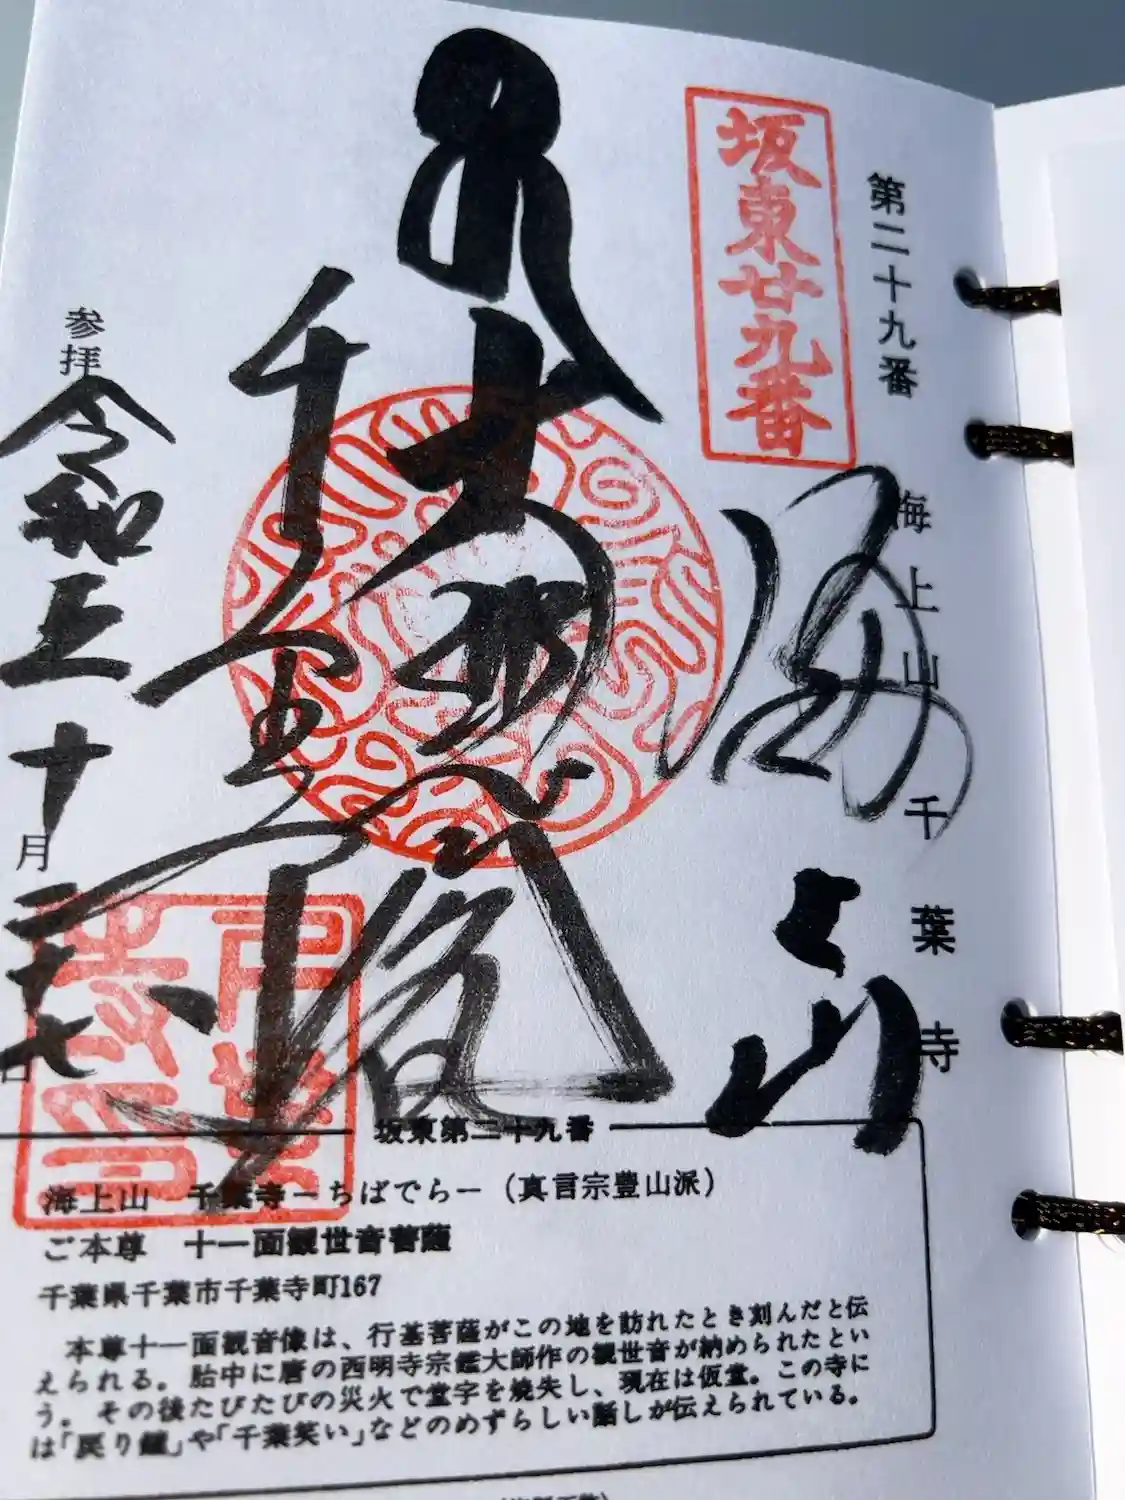 第二十九番
海上山千葉寺
坂東廿九番
海上山
大悲殿
千葉寺
参拝
令和五十月二十七日
坂東第二十九番
海上山　千葉寺－ちばでら－（真言宗豊山派）
ご本尊　十一面観世音菩薩
千葉県千葉市千葉寺町167
本尊十一面観音像は、行基菩薩がこの地を訪れたとき刻んだと伝
えられる。胎中に唐の西明寺宗鑑大師作の観世音が納められたとい
う。その後たびたびの災火で堂字を焼失し、現在は仮堂。この寺に
は「戻り鐘」や「千葉笑い」などのめずらしい話しが伝えられている。